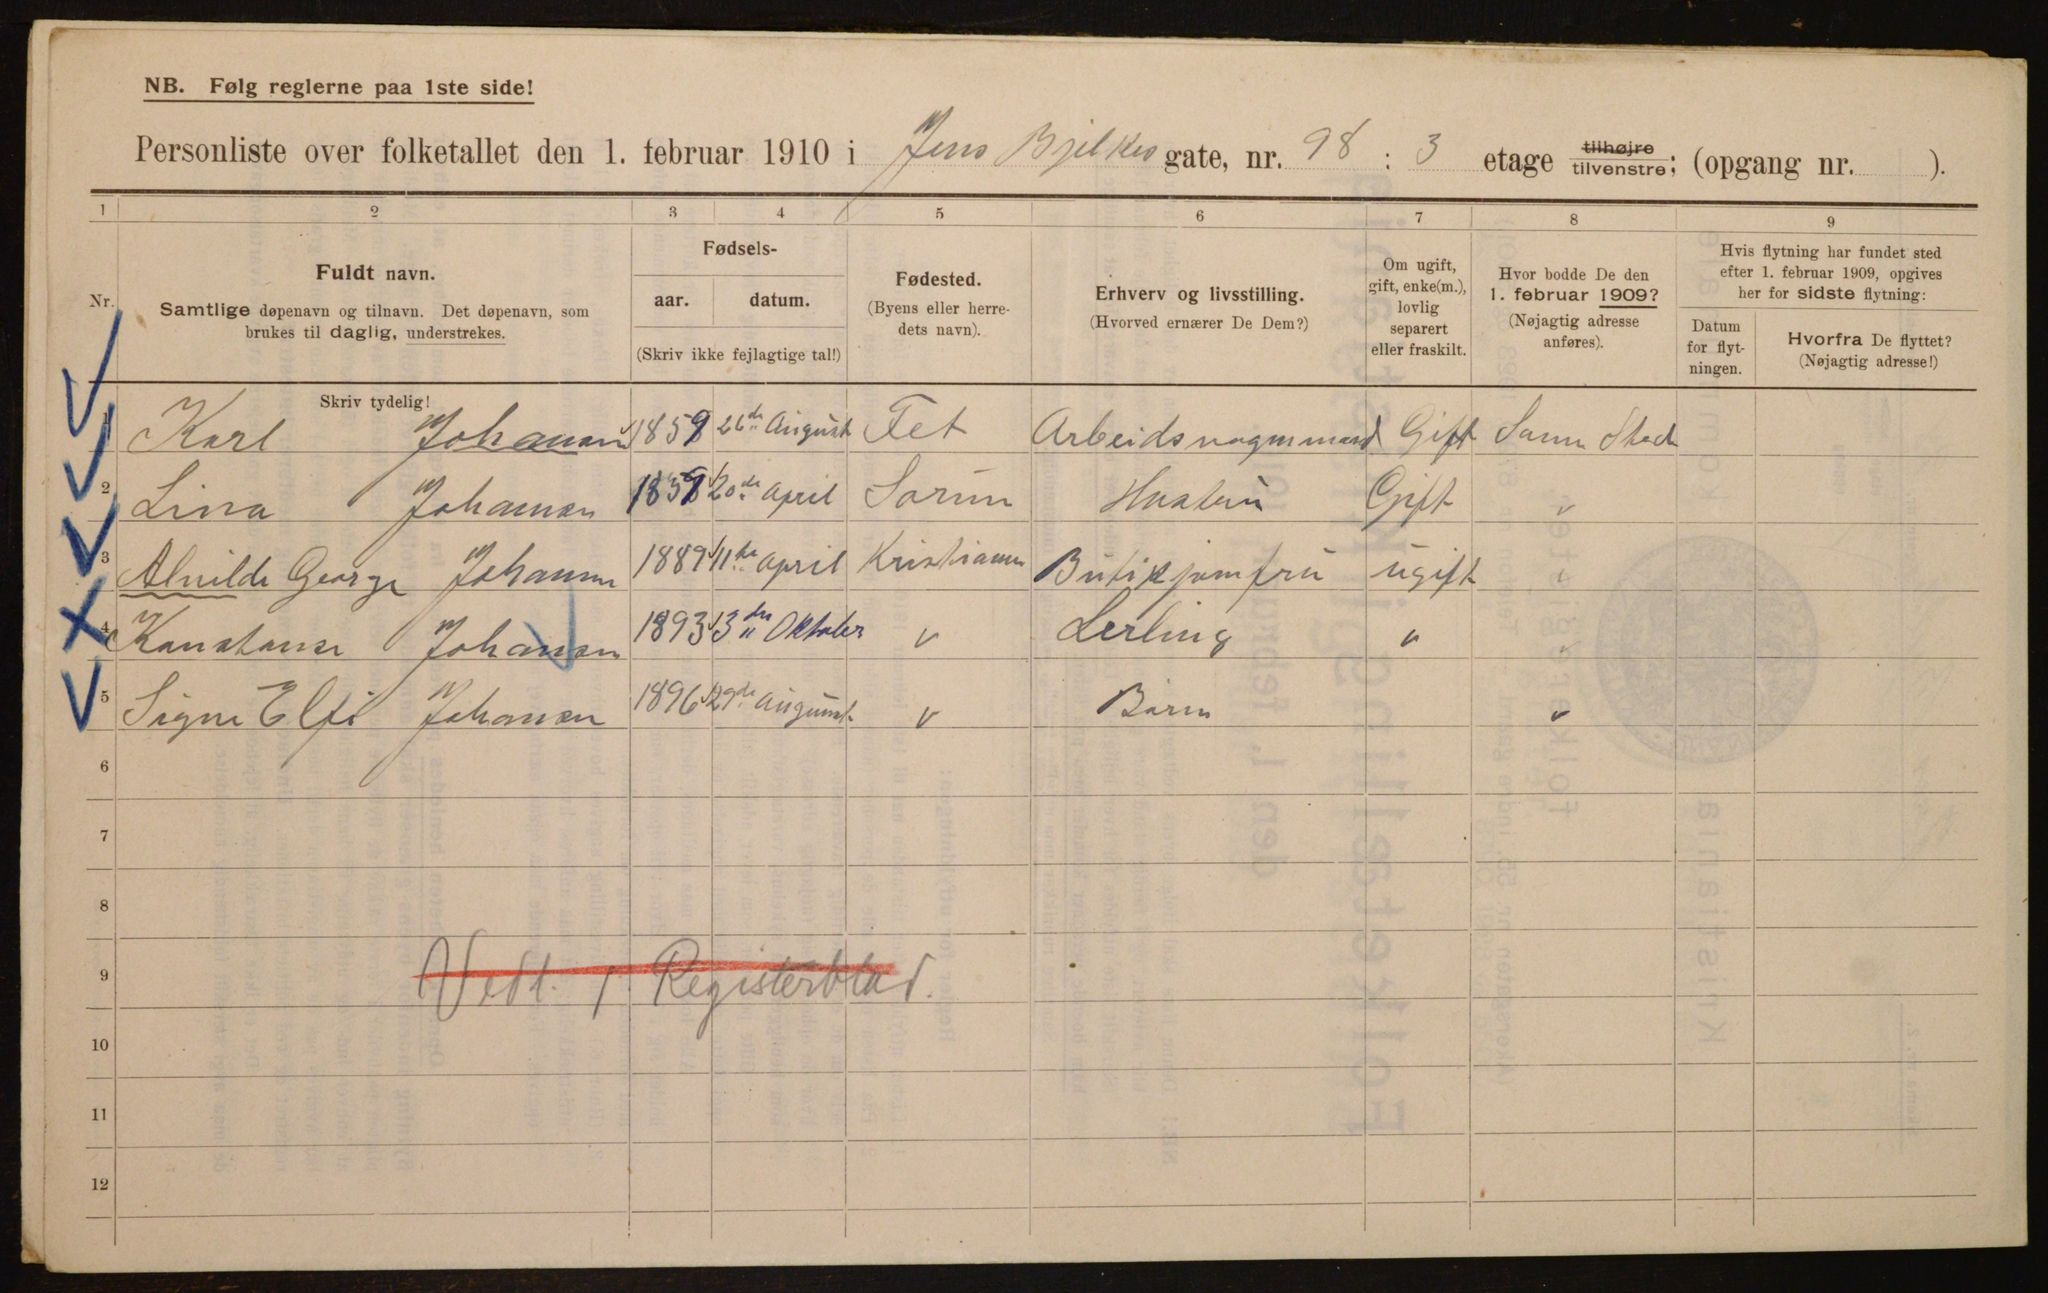 NB. Følg reglerne paa 1ste side!
Personliste over folketallet den 1. februar 1910 i Jens Bjelkes gate, nr. 98 : 3 etage tilhøjre tilvenstre; (opgang nr. ).
1 2 3 4 5 6 7 8 9
Nr.
Fuldt navn.
Samtlige døpenavn og tilnavn. Det døpenavn, som
brukes til daglig, understrekes.
Skriv tydelig!
Fødsels-
aar. datum.
(Skriv ikke fejlagtige tal!)
Fødested.
(Byens eller herre-
dets navn).
Erhverv og livsstilling.
(Hvorved ernærer De Dem?)
Om ugift,
gift, enke(m.),
lovlig
separert
eller fraskilt.
Hvor bodde De den
1. februar 1909?
(Nøjagtig adresse
anføres).
Hvis flytning har fundet sted
efter 1. februar 1909, opgives
her for sidste flytning:
Datum
for flyt-
ningen.
Hvorfra De flyttet?
(Nøjagtig adresse!)
1 Karl Johansen 1859 26de August Fet Arbeidsvognmand Gift Samme Sted
2 Lina Johansen 1859 20de April Sørum Hustru Gift "
3 Alvilde George Johansen 1889 11te April Kristiania Butikjomfru ugift "
4 Konstanse Johansen 1893 13de Oktober " Lerling " "
5 Signe Elfi Johansen 1896 29de August " Barn "
6
7
8
9 Vedl. 1 Registerblad.
10
11
12